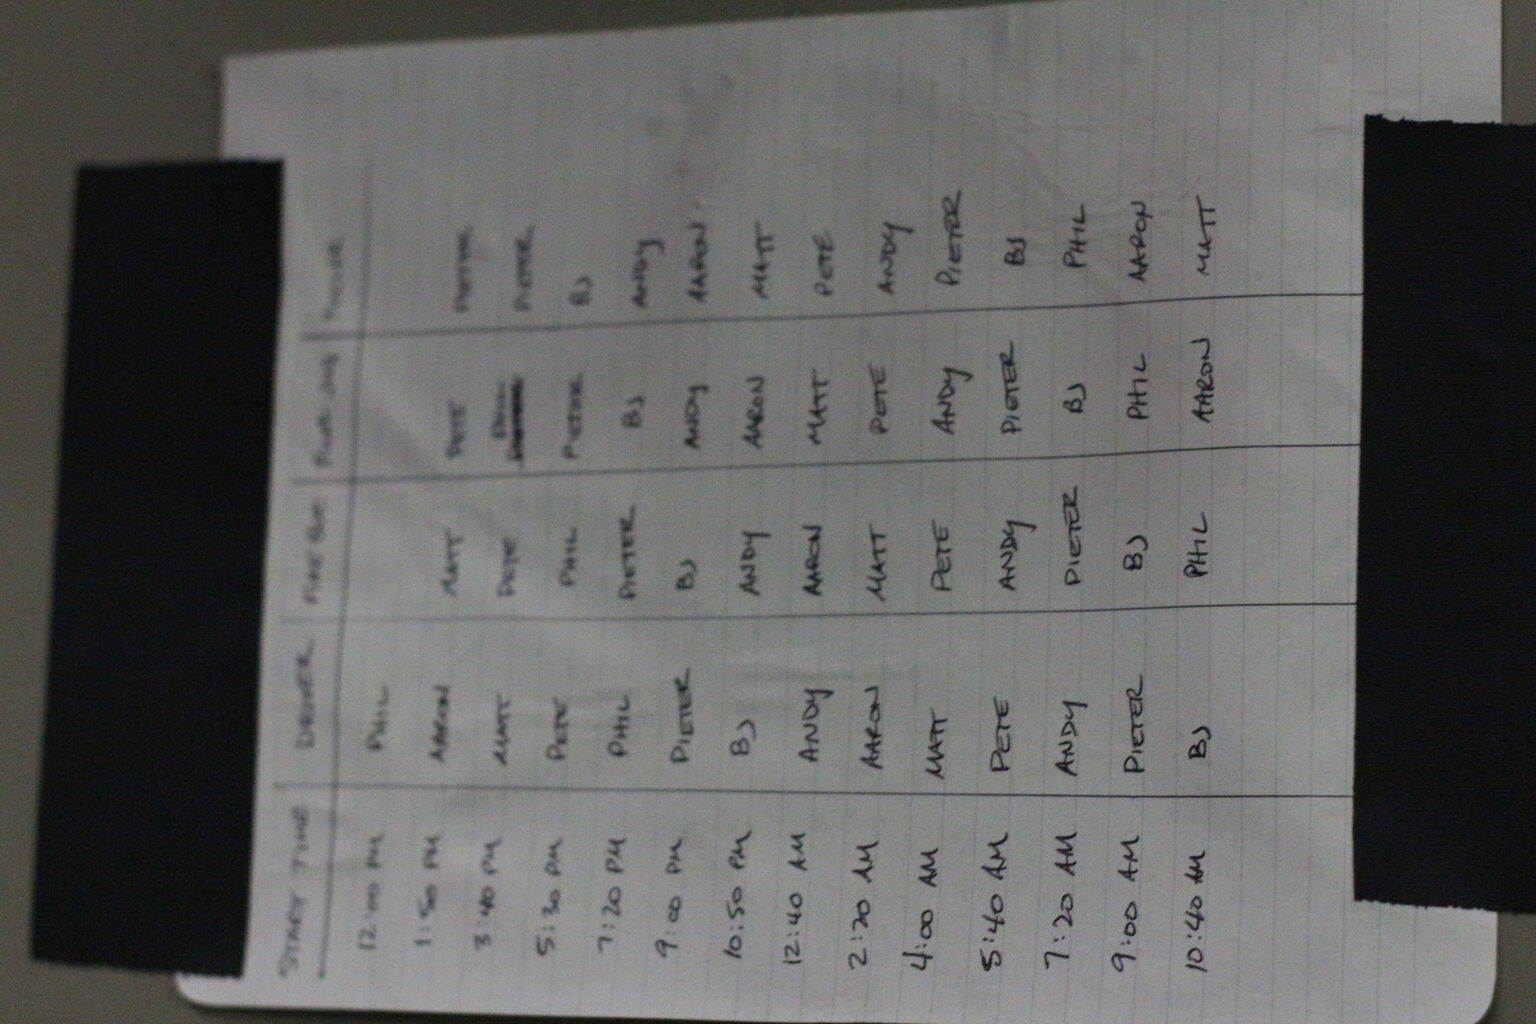 START TIME DRIVER FIRE
12:00 PM PHIL
1:50 PM AARON MATT PETE PIETER
3:40 PM MATT PETE PHIL PIETER
5:30 PM PETE PHIL PIETER BJ
7:20 PM PHIL PIETER BJ ANDY
9:00 PM PIETER BJ ANDY AARON
10:50 PM BJ ANDY AARON MATT
12:40 AM ANDY AARON MATT PETE
2:20 AM AARON MATT PETE ANDY
4:00 AM MATT PETE ANDY PIETER
5:40 AM PETE ANDY PIETER BJ
7:20 AM ANDY PIETER BJ PHIL
9:00 AM PIETER BJ PHIL AARON
10:40 AM BJ PHIL AARON MATT